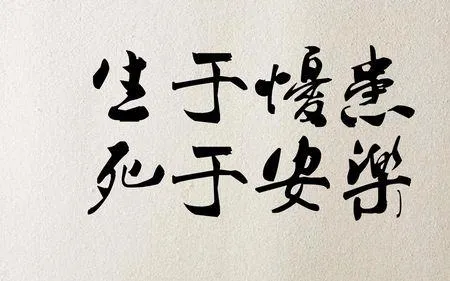 生于懮患
死于安樂